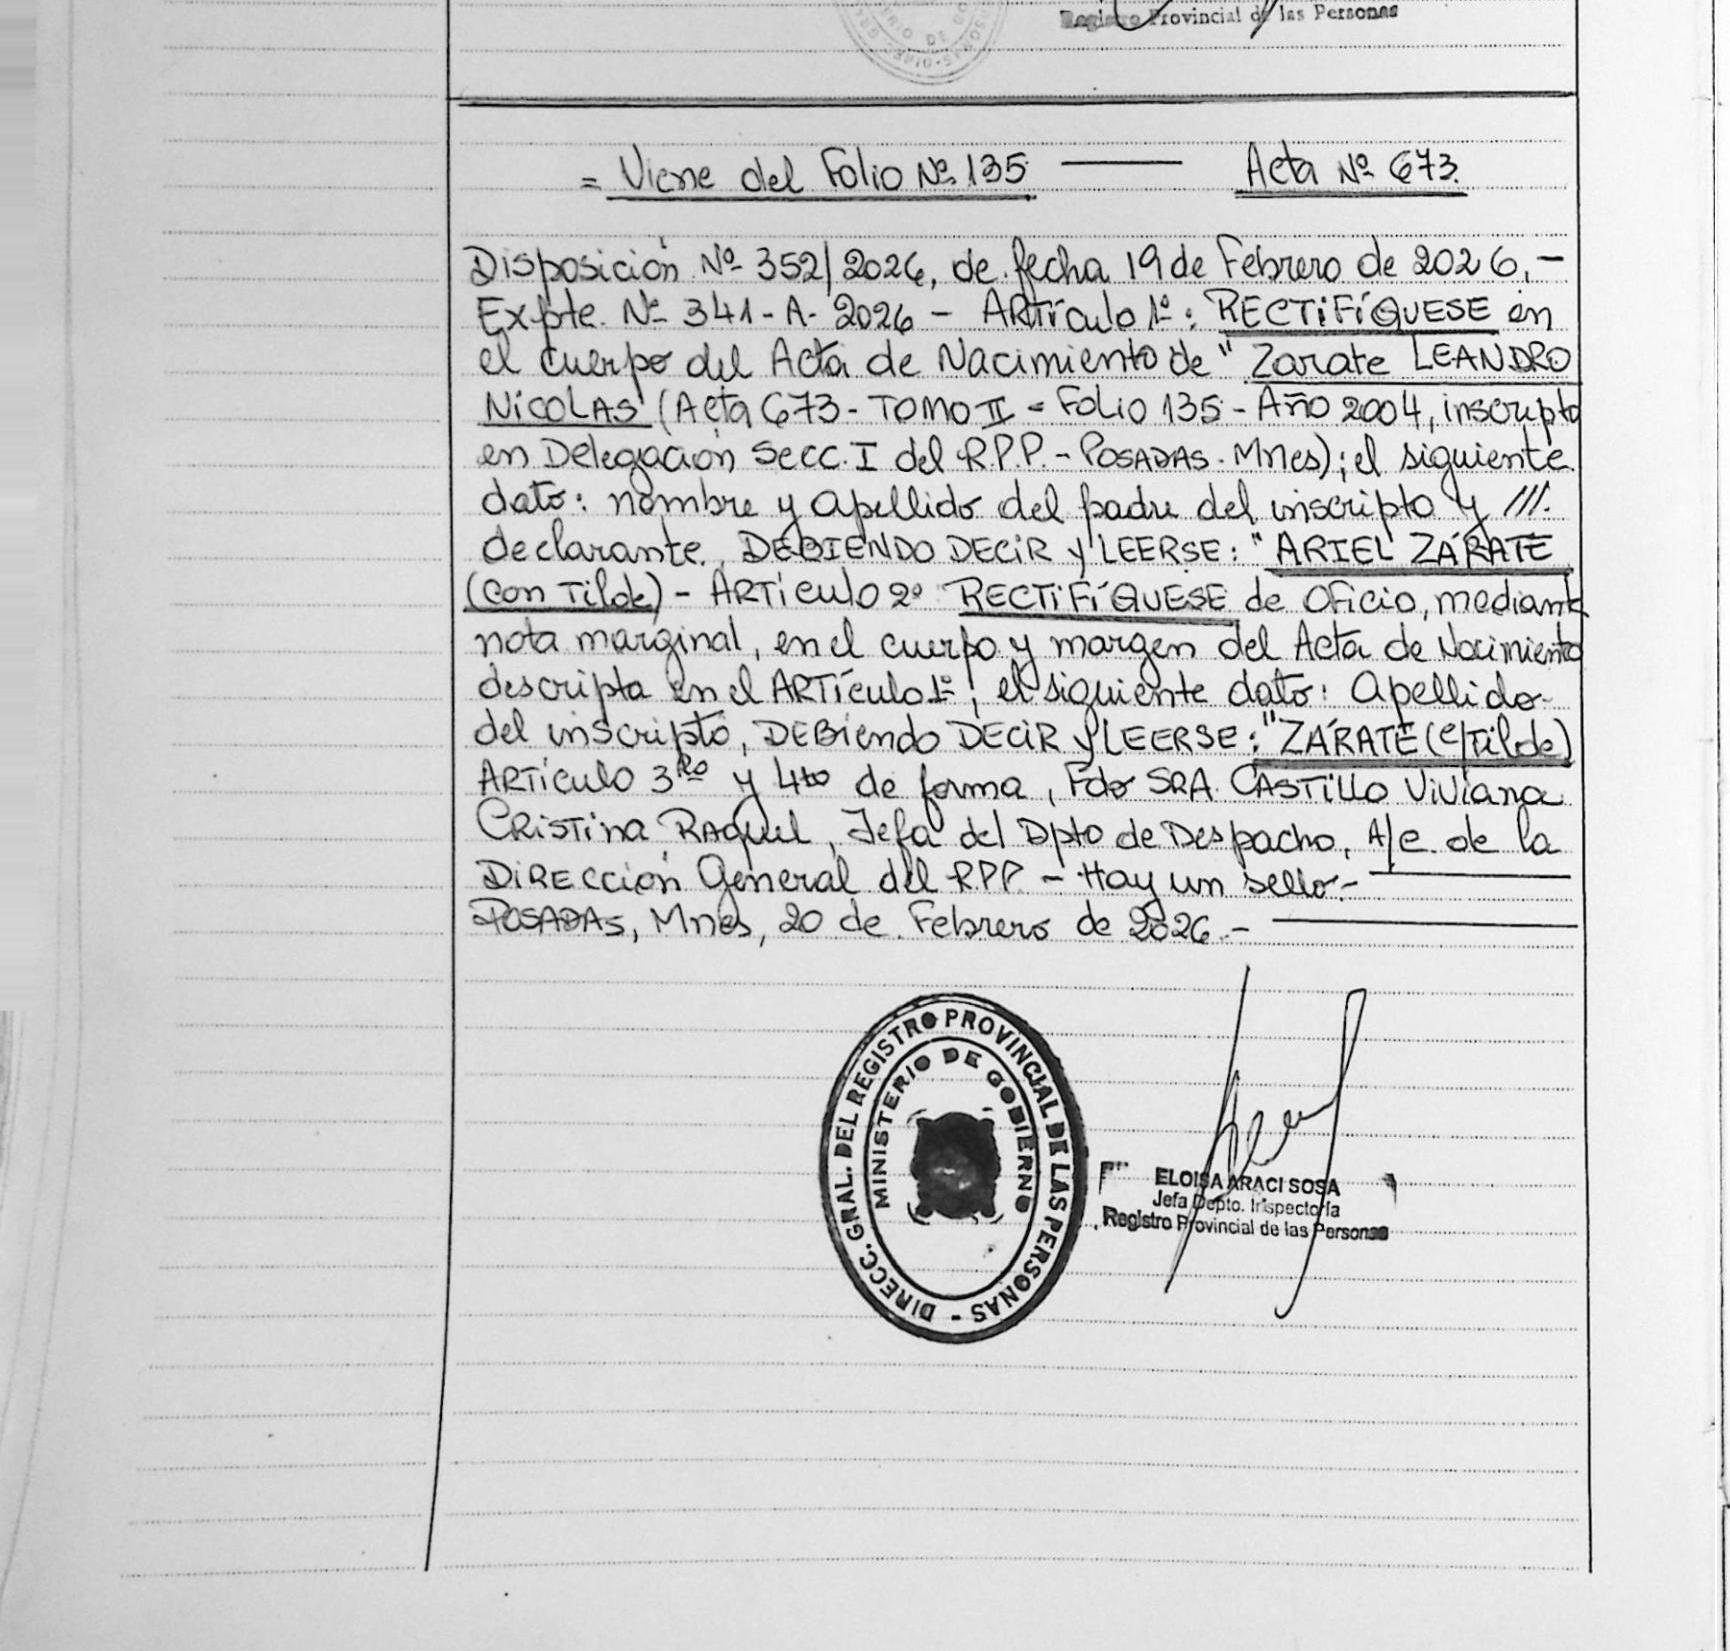 Registro Provincial de las Personas
= Viene del Folio Nº 135 Acta Nº 673.
Disposición Nº 352/2026, de fecha 19 de Febrero de 2026.-
Expte. Nº 341-A-2026 - ARTículo 1º: RECTIFÍQUESE en
el cuerpo del Acta de Nacimiento de "Zarate LEANDRO
NICOLAS" (Acta 673 - TOMO II - Folio 135 - Año 2004, inscripto
en Delegación Secc. I del R.P.P. - POSADAS. Mnes); el siguiente
dato: nombre y apellido del padre del inscripto y ///.
declarante. DEBIENDO DECIR y LEERSE: "ARIEL ZÁRATE
(Con Tilde) - ARTÍculo 2º RECTIFÍQUESE de OFicio, mediante
nota marginal, en el cuerpo y margen del Acta de Nacimiento
descripta en el ARTículo 1º; el siguiente dato: apellido
del inscripto, DEBIendo DECIR y LEERSE: "ZÁRATE (c/Tilde)
ARTículo 3ro y 4to de forma, Fdo SRA CASTILLO Viviana
CRISTINA RAQUEL, Jefa del Dpto de Despacho, A/c. de la
DIRECción General del RPP. - Hay un sello.-
POSADAS, Mnes, 20 de Febrero de 2026.-
DIRECC. GRAL. DEL REGISTRO PROVINCIAL DE LAS PERSONAS -
MINISTERIO DE GOBIERNO
ELOISA ARACI SOSA
Jefa Depto. Inspectoría
Registro Provincial de las Personas